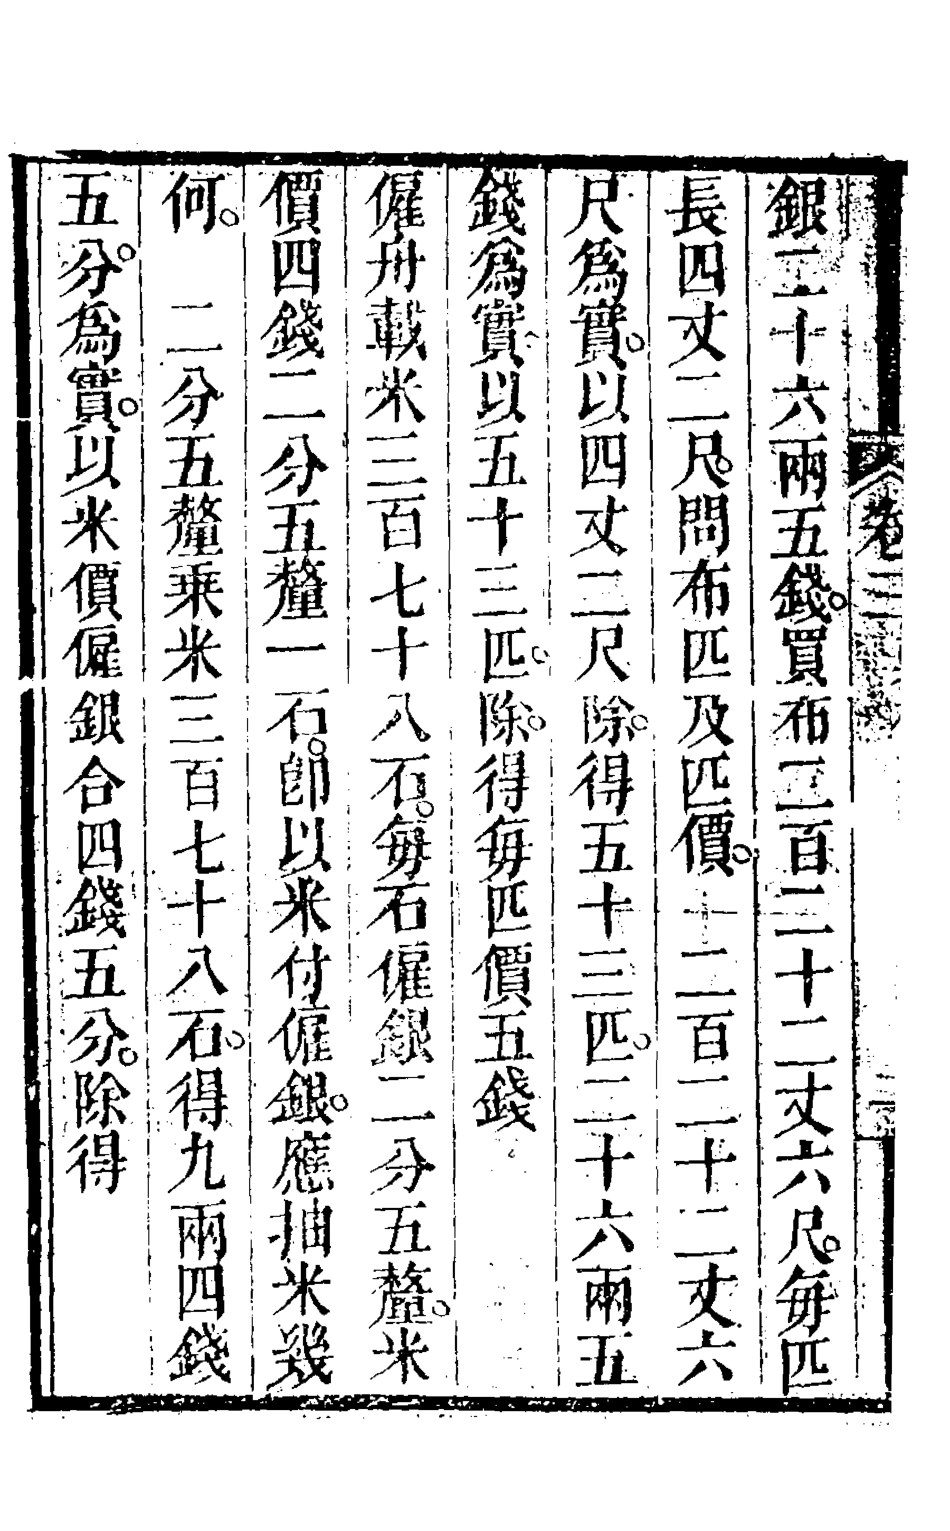 卷
銀二十六兩五錢。買布二百二十二丈六尺。每匹
長四丈二尺。問布匹及匹價。　二百二十二丈六
尺爲實。以四丈二尺除。得五十三匹。二十六兩五
錢爲實以五十三匹。除。得每匹價五錢
僱舟載米三百七十八石。每石僱銀二分五釐。米
價四錢二分五釐一石。卽以米付僱銀。應抽米幾
何。　二分五釐乗米三百七十八石。得九兩四錢
五分。爲實。以米價僱銀合四錢五分。除得